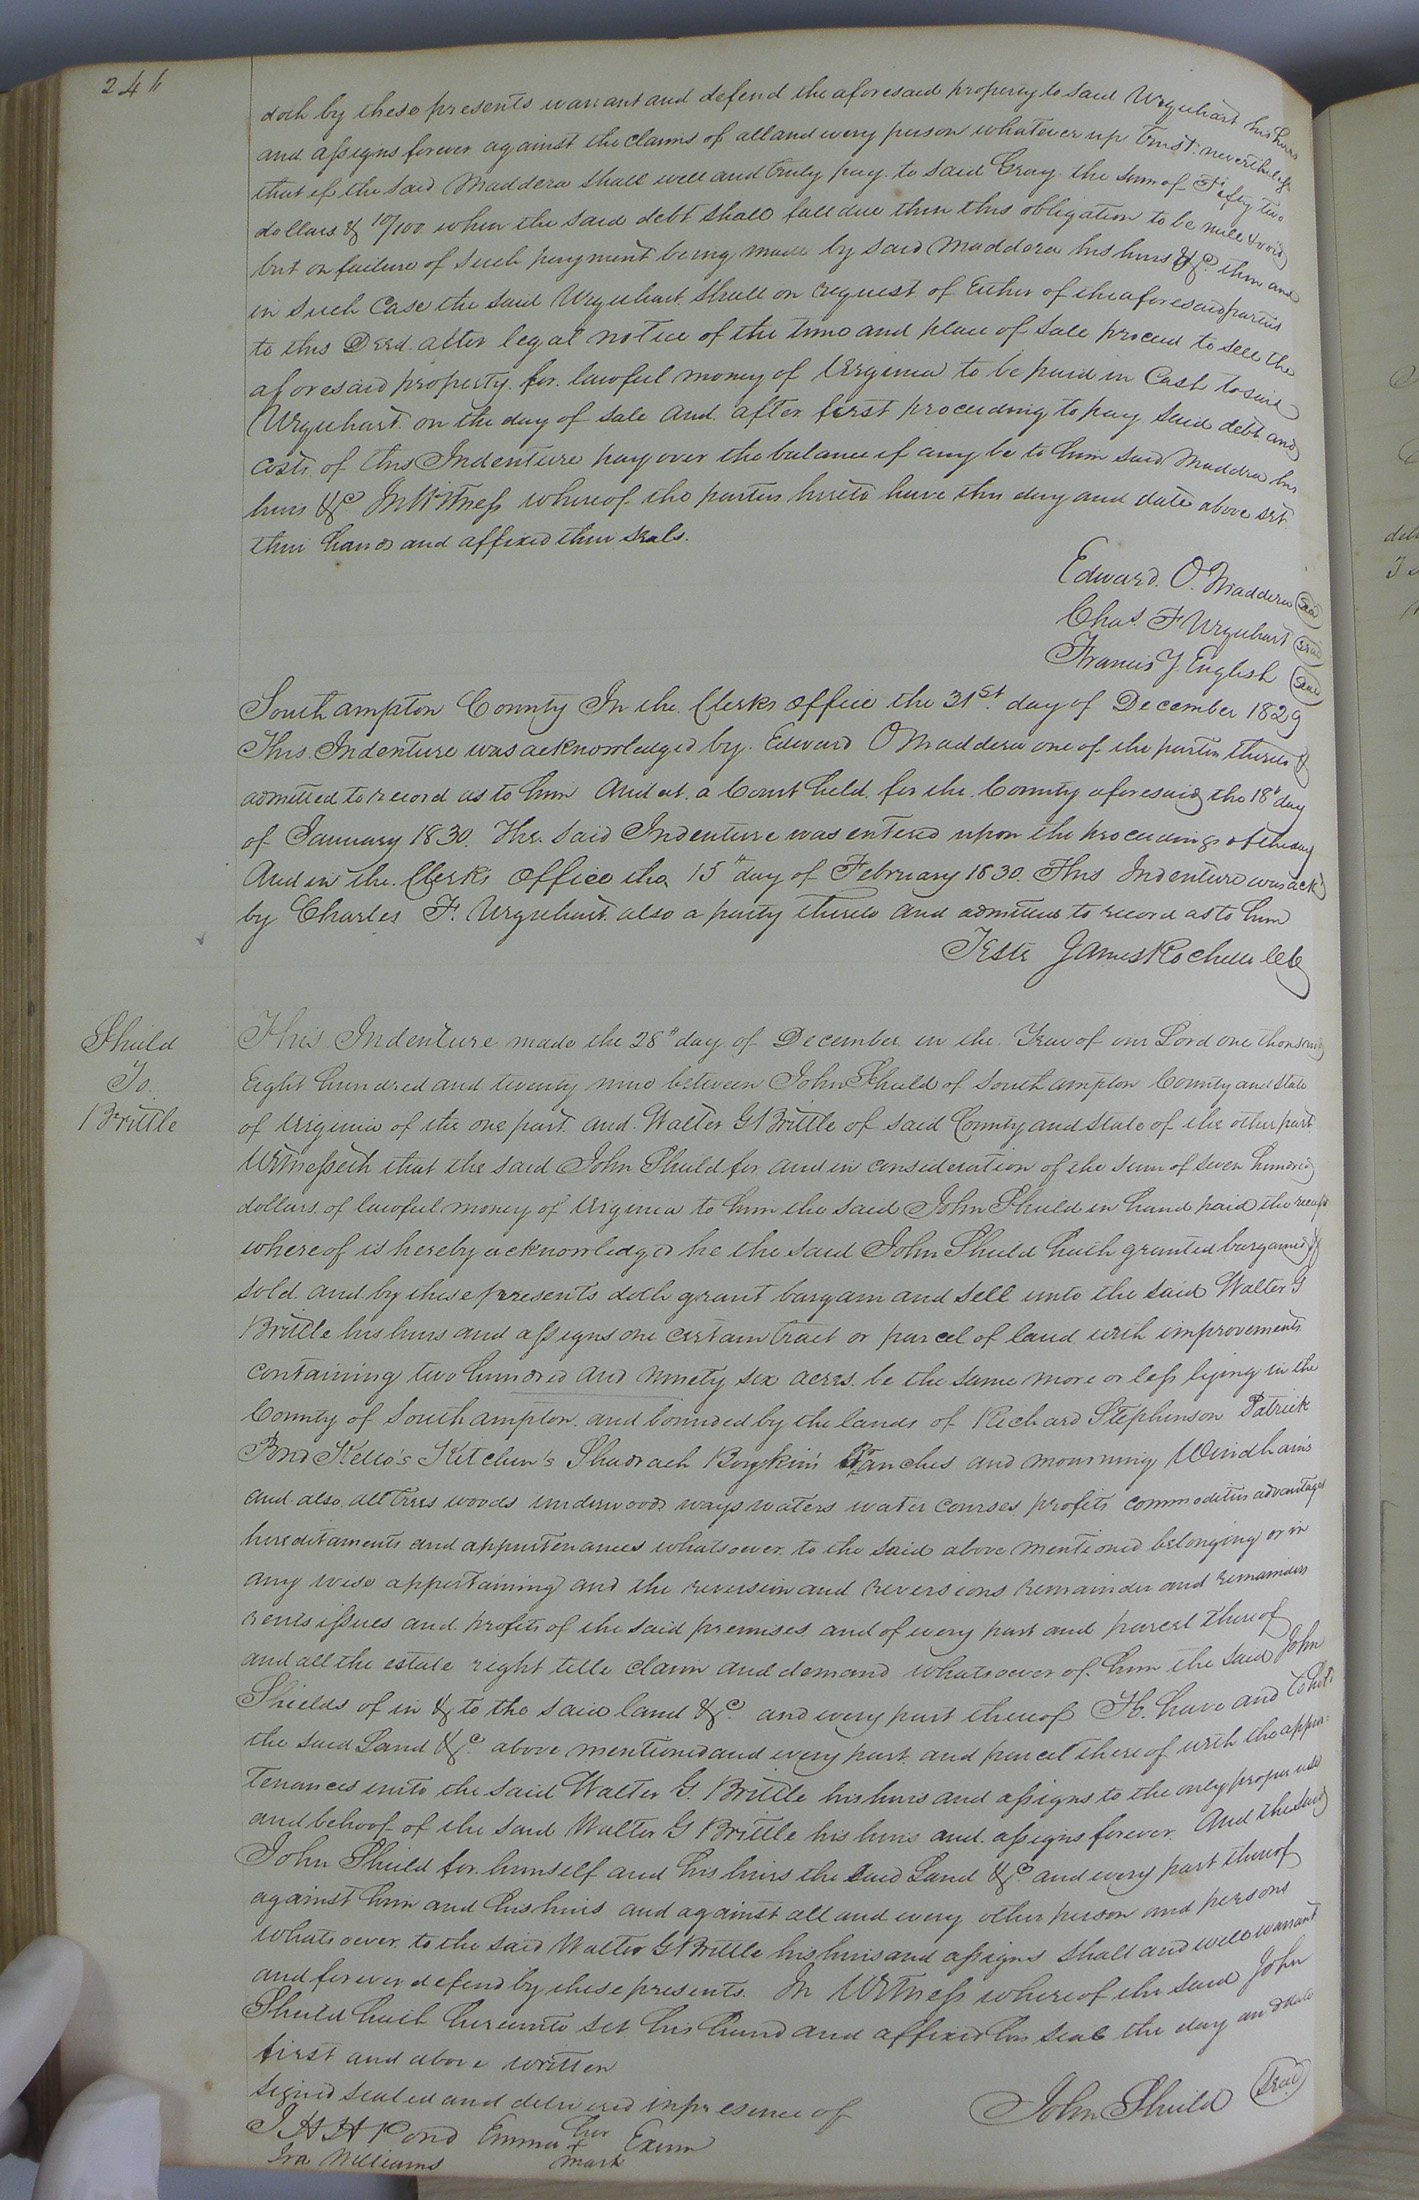 244
doth by these presents warrant and defend the aforesaid property to said Urquhart his heirs
and assigns forever against the claims of all and every person whatever up Trust nevertheless
that if the said Maddera shall well and truly pay to said Gray the sum of Fifty two
dollars & 10/100 when the said debt shall fall due then this obligation to be null & void
but on failure of such payment being made by said Maddera his heirs &c then and
in such case the said Urquhart shall on request of Either of the aforesaid parties
to this Deed after legal notice of the time and place of sale proceed to sell the
aforesaid property for lawful money of Virginia to be paid in Cash to said
Urquhart on the day of sale and after first proceeding to pay said debt and
costs of this Indenture pay over the balance if any be to him said Maddera his
heirs &c In Witness whereof the parties hereto have this day and date above set
their hands and affixed their seals.
Edward O. Maddera seal
Chas. F Urquhart seal
Francis J English seal
Southampton County In the Clerks office the 31st day of December 1829
This Indenture was acknowledged by Edward O Maddera one of the parties thereto &
admitted to record as to him And at a Court held for the County aforesaid the 18th day
of January 1830. The said Indenture was entered upon the proceedings of the day
And in the Clerks Office the 15th day of February 1830. This Indenture was ackd
by Charles F. Urquhart also a party thereto and admitted to record as to him
Teste James Rochelle
Shield
To.
Brittle
This Indenture made the 28th day of December in the Year of our Lord one thousand
Eight hundred and twenty nine between John Shield of Southampton County and State
of Virginia of the one part and Walter G Brittle of said County and State of the other part
Witnesseth that the said John Shield for and in consideration of the sum of seven hundred
dollars of lawful money of Virginia to him the said John Shield in hand paid the receipt
whereof is hereby acknowledged he the said John Shield hath granted bargained &
sold and by these presents doth grant bargain and sell unto the said Walter G
Brittle his heirs and assigns one certain tract or parcel of land with improvements
containing two hundred and ninety six acres be the same more or less lying in the
County of Southampton and bounded by the lands of Richard Stephenson Patrick
Pond Kello's Kitchen's Shadrach Boykin's Branches and mourning Windham's
and also all trees woods underwoods ways waters water courses profits commodities advantages
hereditaments and appurtenances whatsoever to the said above mentioned belonging or in
any wise appertaining and the reversion and reversions remainder and remainders
rents issues and profits of the said premises and of every part and parcel thereof
and all the estate right title claim and demand whatsoever of him the said John
Shields of in & to the said land &c and every part thereof To have and to hold
the said Land &c above mentioned and every part and parcel thereof with the appur-
tenances unto the said Walter G. Brittle his heirs and assigns to the only proper use
and behoof of the said Walter G Brittle his heirs and assigns forever And the said
John Shield for himself and his heirs the said Land &c and every part thereof
against him and his heirs and against all and every other person and persons
whatsoever to the said Walter G Brittle his heirs and assigns shall and will warrant
and forever defend by these presents. In Witness whereof the said John
Shield hath hereunto set his hand and affixed his seal the day and date
first and above written
signed sealed and delivered in presence of
John Shield seal
J H H Pond Emma her Exum
Ira Williams mark